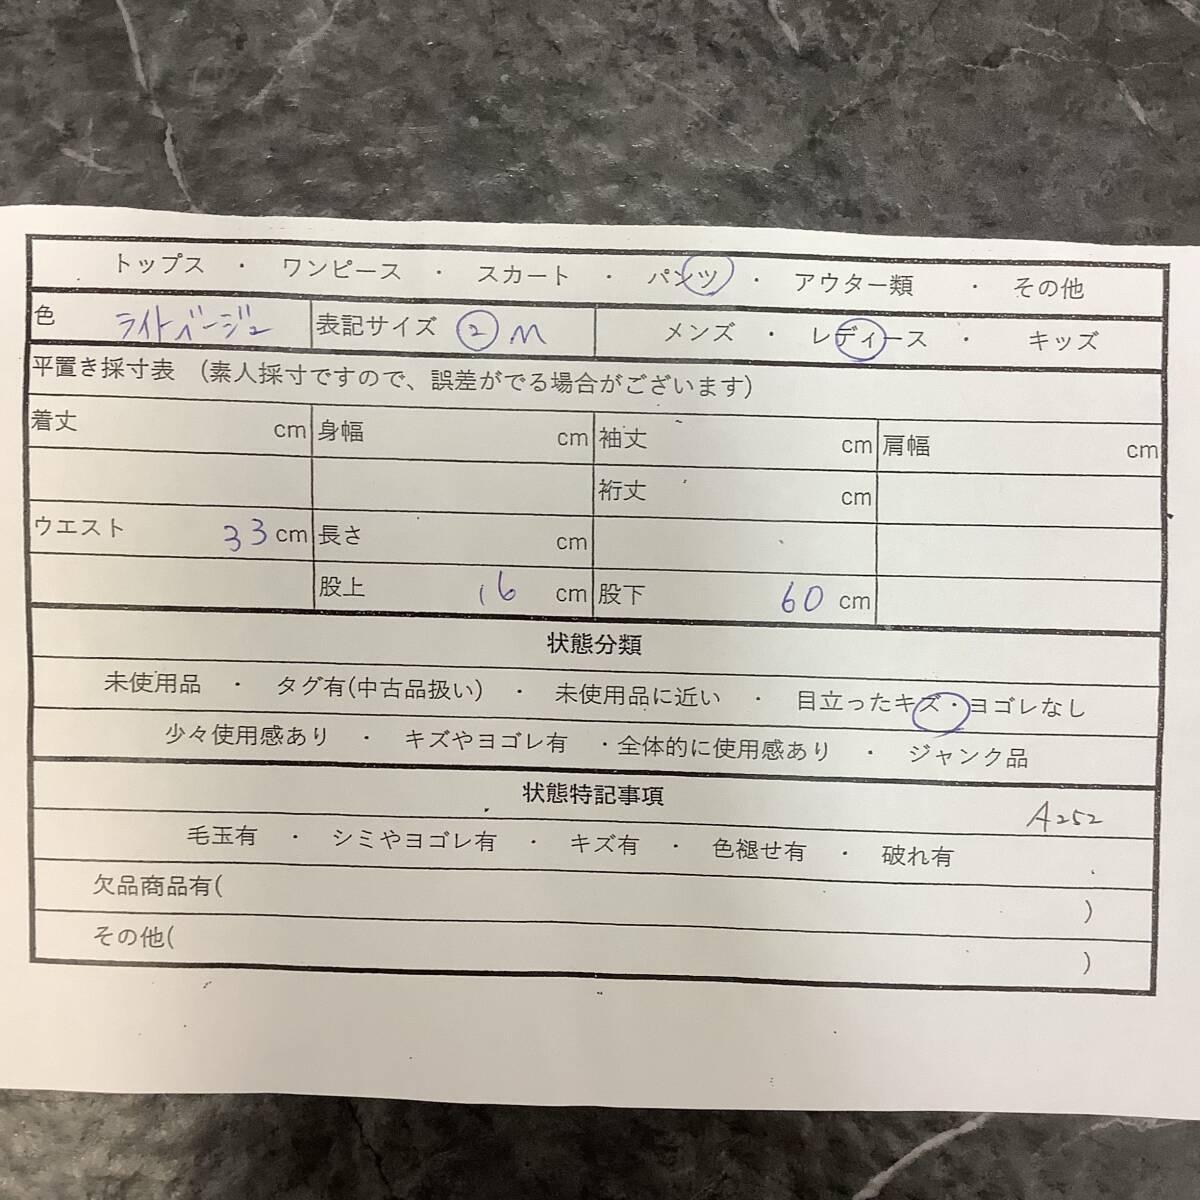 トップス ・ ワンピース ・ スカート ・ パンツ ・ アウター類 ・ その他
色 ライトベージュ 表記サイズ ② M メンズ ・ レディース ・ キッズ
平置き採寸表 (素人採寸ですので、誤差がでる場合がございます)
着丈 cm 身幅 cm 袖丈 cm 肩幅 cm
裄丈 cm
ウエスト 33 cm 長さ cm
股上 16 cm 股下 60 cm
状態分類
未使用品 ・ タグ有(中古品扱い) ・ 未使用品に近い ・ 目立ったキズ・ヨゴレなし
少々使用感あり ・ キズやヨゴレ有 ・全体的に使用感あり ・ ジャンク品
状態特記事項
A252
毛玉有 ・ シミやヨゴレ有 ・ キズ有 ・ 色褪せ有 ・ 破れ有
欠品商品有( )
その他( )